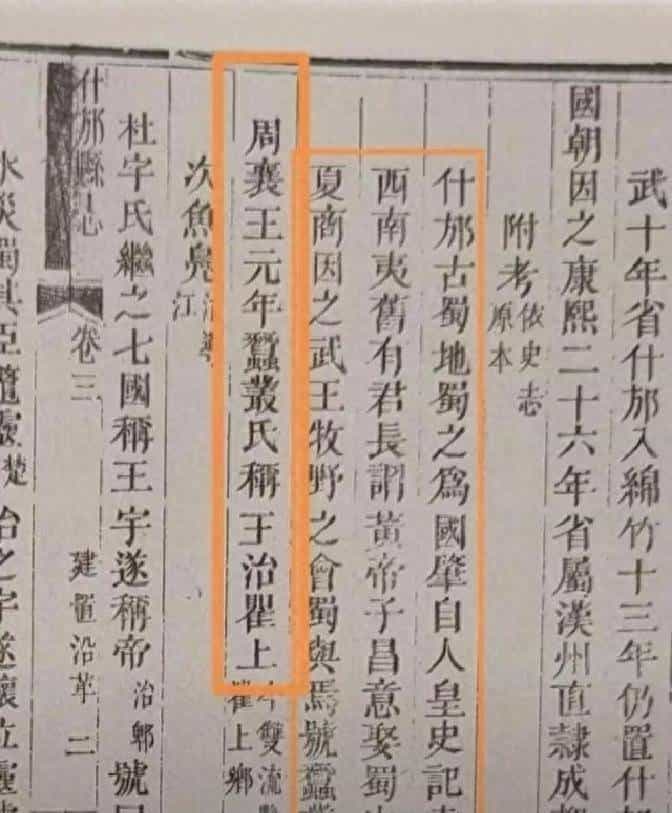 武十年省什邡入綿竹十三年仍置什
國朝因之康熙二十六年省屬漢州直隸成
附考依史志原本
什邡古蜀地蜀之爲國肇自人皇史記
西南夷舊有君長謂黃帝子昌意娶蜀
夏商因之武王牧野之會蜀與焉號蠶
周襄王元年蠶叢氏稱王治瞿上今雙流瞿上鄉
次魚鳧
杜宇氏繼之七國稱王宇遂稱帝治郫號
什邡縣志
卷三
建置沿革
二
水災蜀其臣鱉靈楚治之宇遂